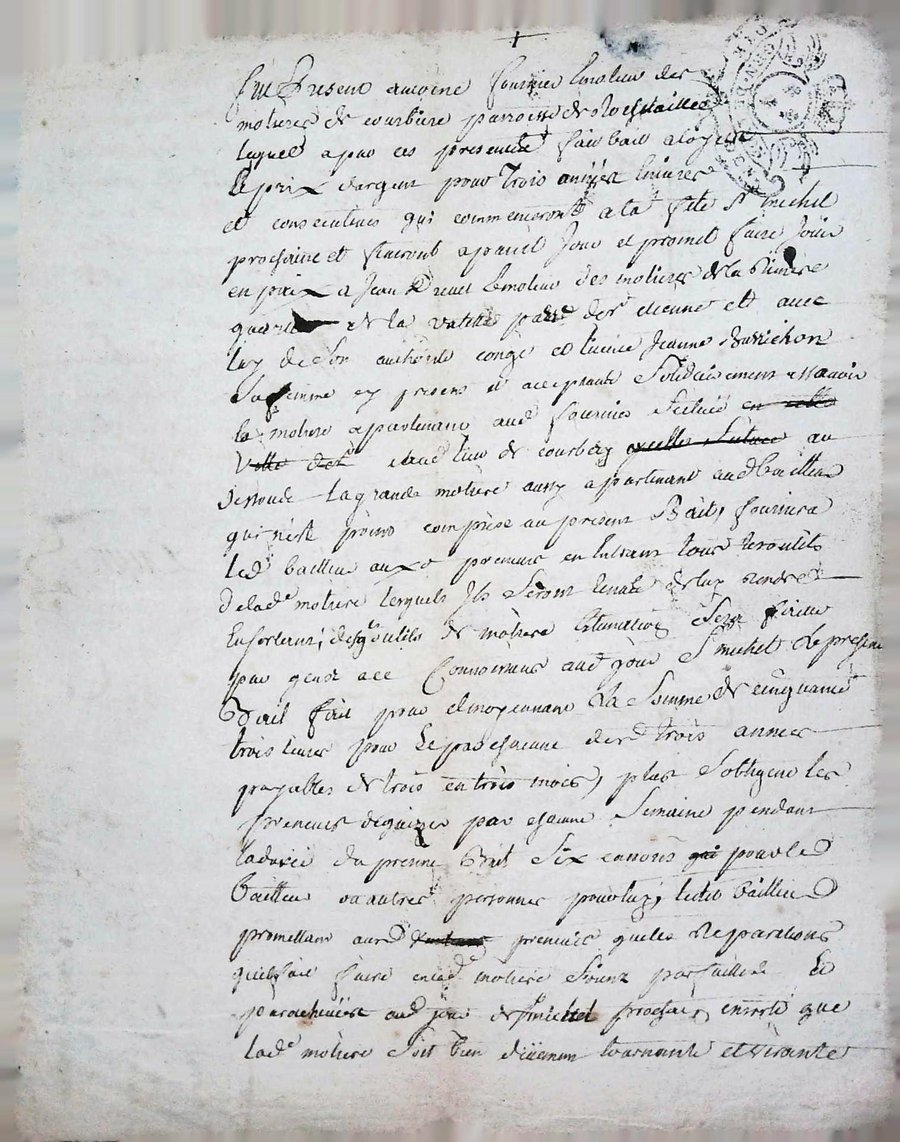 +
fut Present antoine fournier Emoleur des
molieres de courbiere parroisse de Rochetaillee
Lequel a par ces presentes fait bail a loyer
le prix d'argent pour Trois années
et consecutives qui commenceront a la fete St michel
prochaine et finiront a pareil Jour et promet faire Joüir
en paix a Jean Drevet Emoleur des molieres de la Riviere
de la de St etienne et avec
luy de son authorité congé et licence Jeanne
Sa femme cy presens et acceptants Solidairement assavoir
la moliere apartenant aud fournier Scituée en
Ville aud lieu de courbery au
dessoude La grande moliere aussy apartenant aud bailleur
qui n'est point comprise au present Bail, fournira
Led bailleur auxd preneurs en Entrant tous les outils
de lade moliere lesquels Ils Seront tenus de luy rendre
En sortant, desqls outils de moliere Estimation Sera faitte
par gens ace Connoissans aud jour St michel Le present
Bail fait pour et moyennant La Somme de cinquante
trois livres pour chacune desd trois années
payables de trois en trois mois, plus S'obligent les
preneurs d'eguizer par chacune Semaine pendant
la durée du present Bail Six canons qui pour led
bailleur ou autres personnes pour luy, ledit bailleur
promettant auxd preneurs que les Reparations
qu'il fait faire en lad moliere Seront parfaittes Et
parachevées aud jour de St michel prochain, en sorte que
lade moliere Soit bien tournante et virante